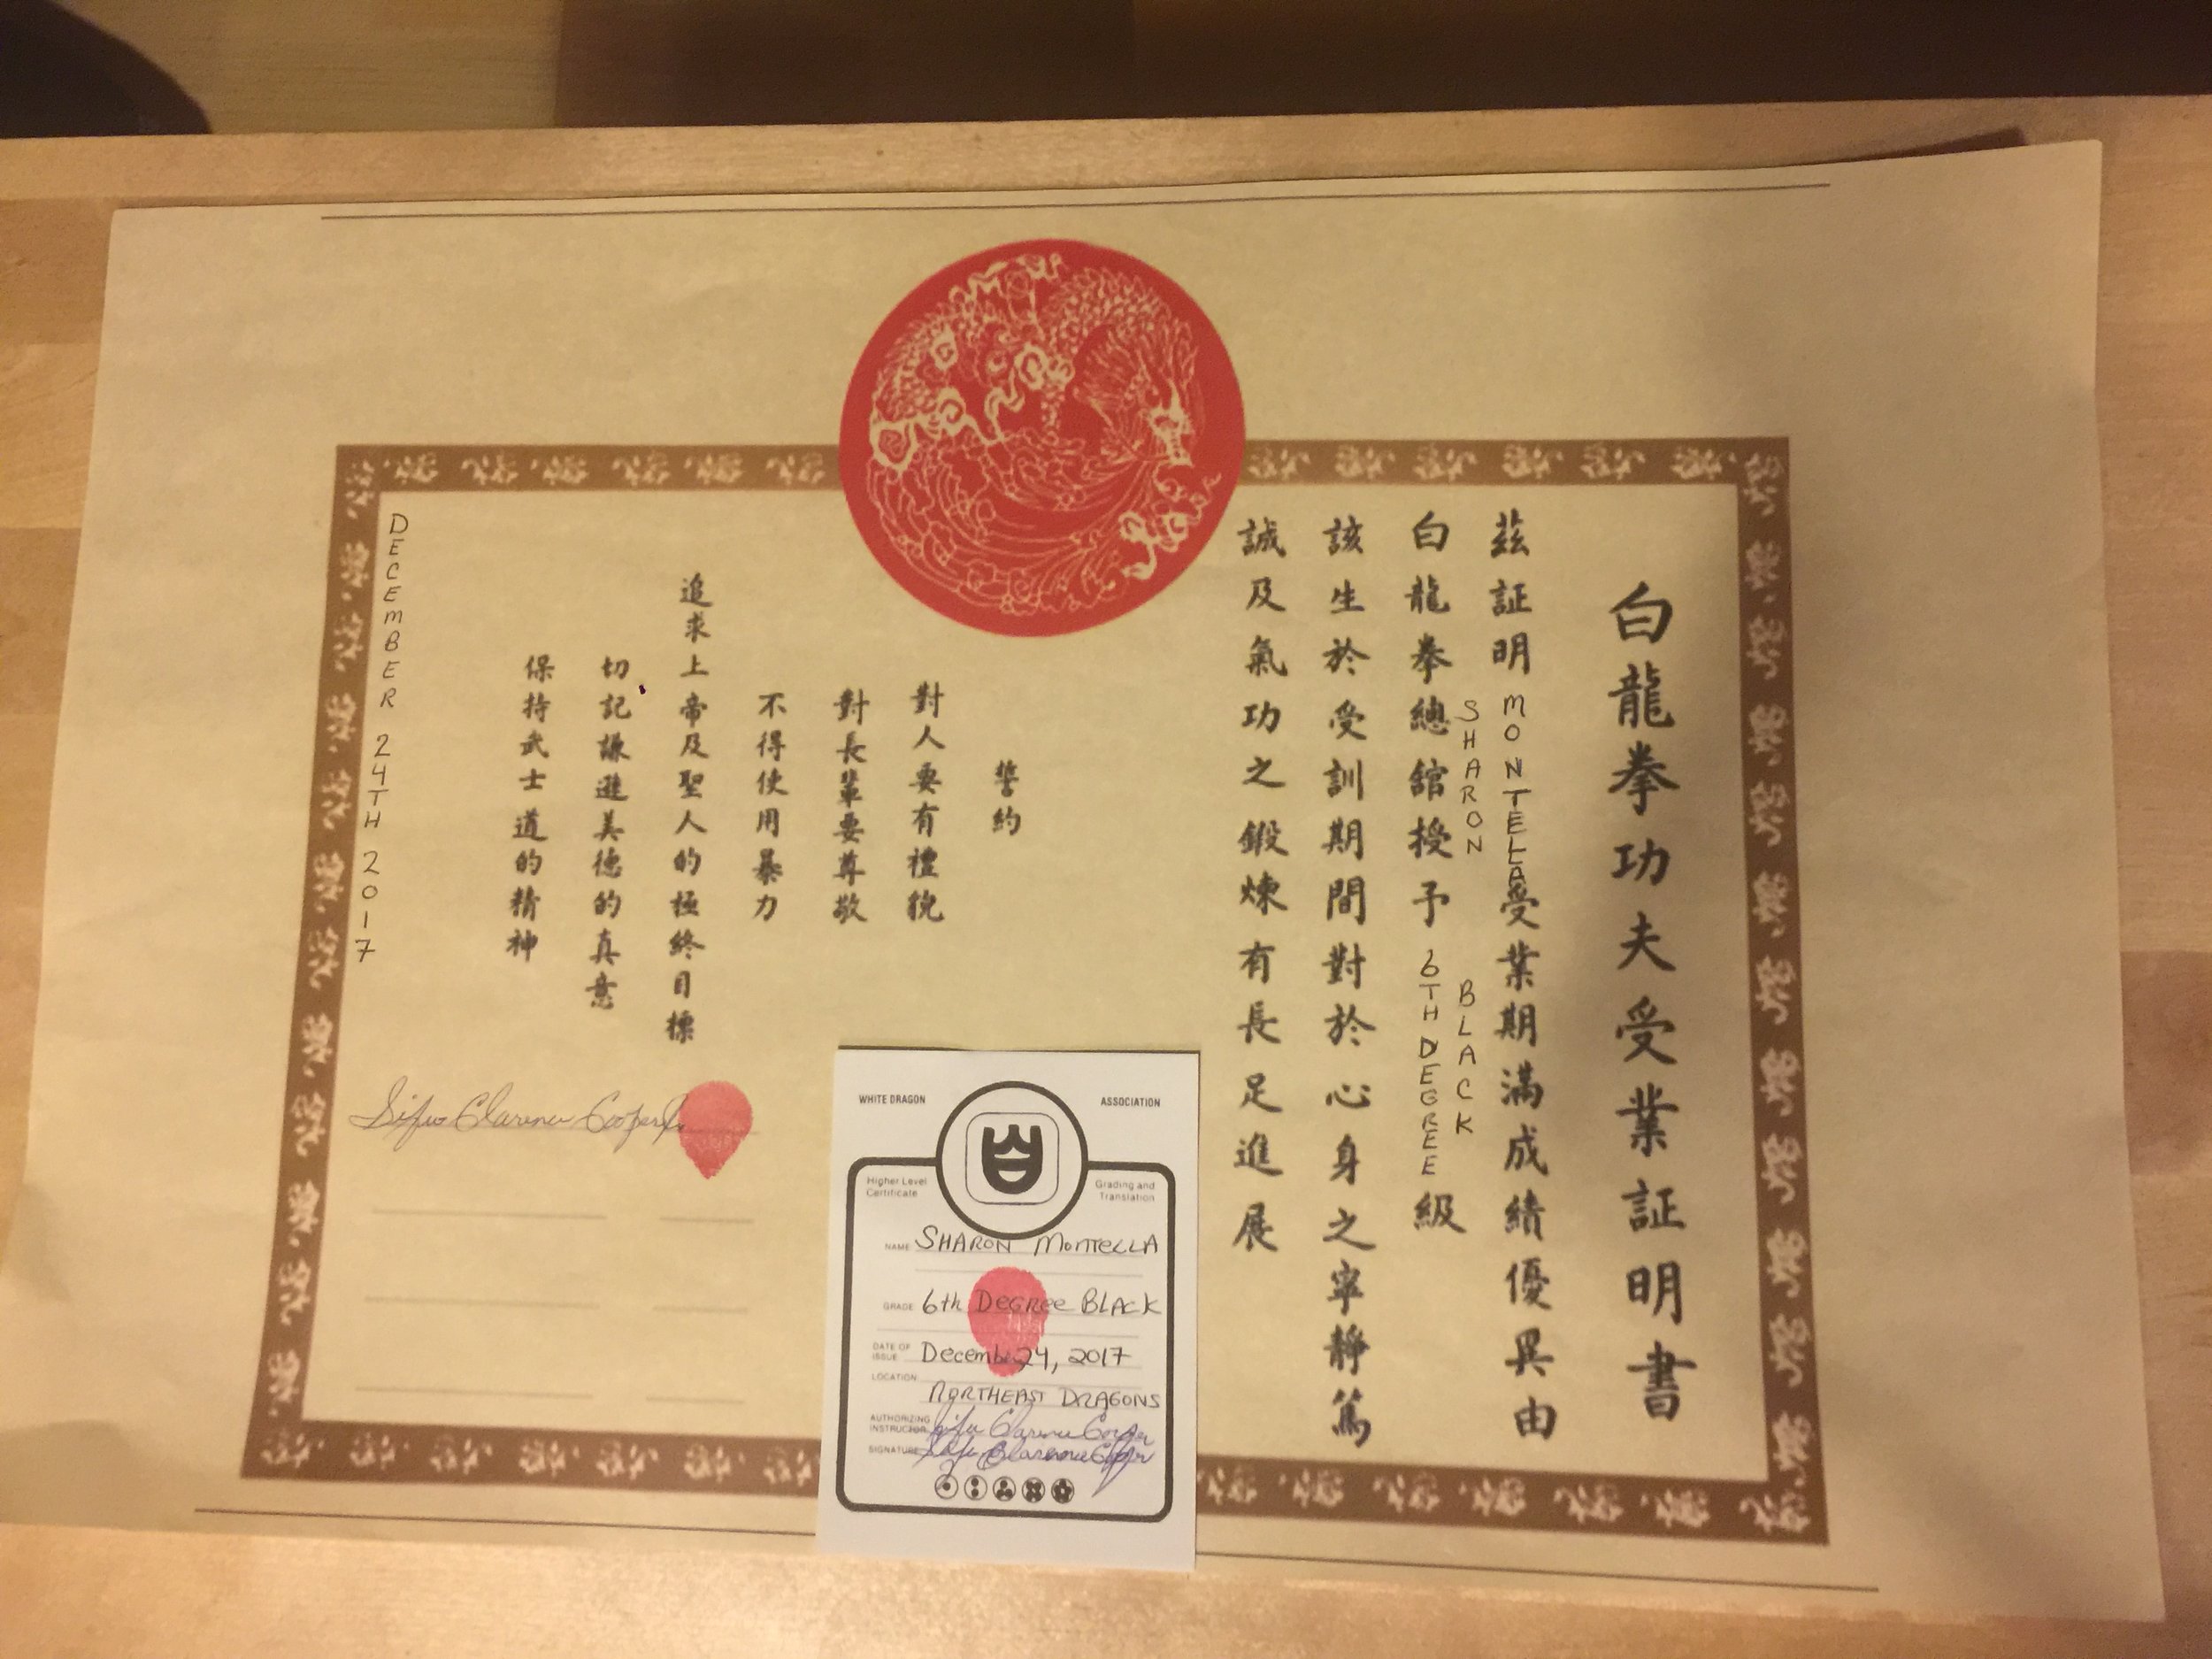 白龍拳功夫受業証明書
茲証明 MONTELLA 受業期滿成績優異由
SHARON
BLACK
白龍拳總舘授予 6TH DEGREE 級
該生於受訓期間對於心身之寧靜篤
誠及氣功之鍛煉有長足進展
誓約
對人要有禮貌
對長輩要尊敬
不得使用暴力
追求上帝及聖人的極終目標
切記謙遜美德的真意
保持武士道的精神
DECEMBER 24TH 2017
Sifu Clarence Cooper Jr.
WHITE DRAGON ASSOCIATION
Higher Level Certificate
Grading and Translation
NAME SHARON MONTELLA
GRADE 6th DEGREE BLACK
DATE OF ISSUE December 24, 2017
LOCATION NORTHEAST DRAGONS
AUTHORIZING INSTRUCTOR Sifu Clarence Cooper
SIGNATURE Sifu Clarence Cooper